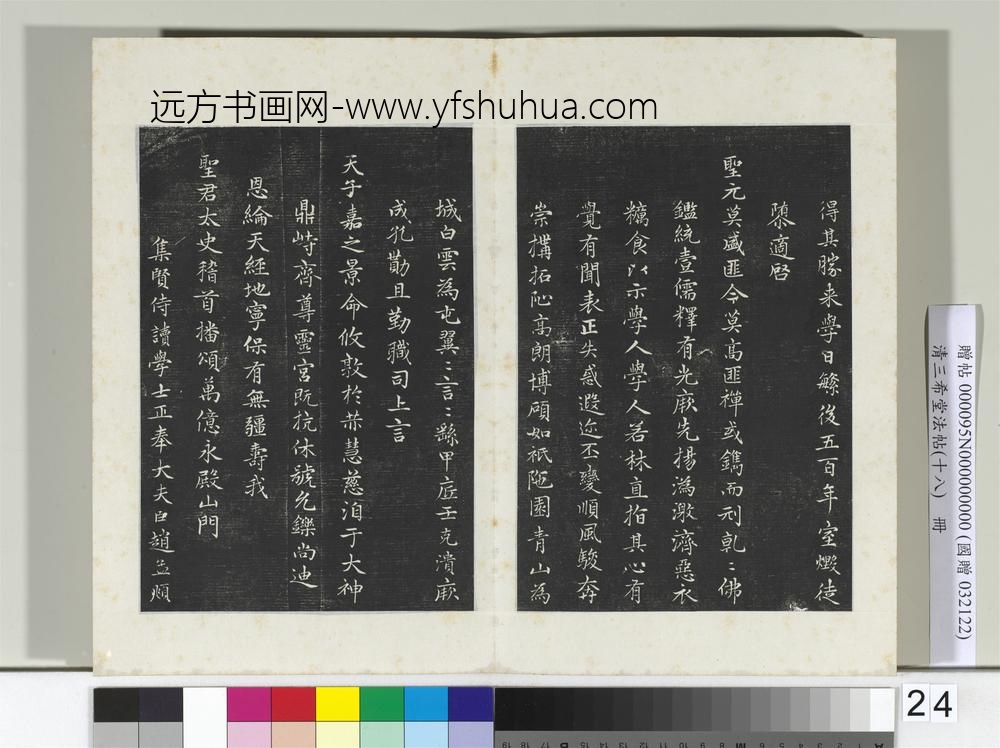 远方书画网-www.yfshuhua.com
得其勝来學日緐後五百年室燬徒
隊適啓
聖元莫盛匪今莫高匪禪或鐫而刓乾〻佛
鑑統壹儒釋有光厥先揚溈激濟惡衣
糲食以示學人學人若林直指其心有
覺有聞表正失惑遐迩丕變順風駿奔
崇構拓阤高朗博碩如祇陁園青山為
城白雲為屯翼〻言〻緐甲庢壬克潰厥
成孔勩且勤職司上言
天子嘉之景命攸敦於恭慧慈洎于大神
鼎峙齊尊靈宮既抗休號允鑠尚迪
恩綸天經地寧保有無疆壽我
聖君太史稽首播頌萬億永殿山門
集賢侍讀學士正奉大夫臣趙孟頫
贈帖 000095N000000000 (國贈 032122)
清三希堂法帖(十八) 冊
24